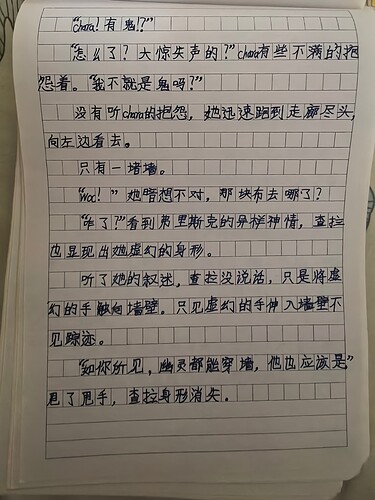 “chara！有鬼？”
“怎么了？大惊失声的？”chara有些不满的抱
怨着。“我不就是鬼吗？”
没有听chara的抱怨，她迅速跑到走廊尽头，
向左边看去。
只有一堵墙。
“woc！”她暗想不对，那块布去哪了？
“咋了？”看到弗里斯克的异样神情，查拉
也显现出她虚幻的身形。
听了她的叙述，查拉没说话，只是将虚
幻的手触向墙壁。只见虚幻的手伸入墙壁不
见踪迹。
“如你所见，幽灵都能穿墙，他也应该是”
甩了甩手，查拉身形消失。